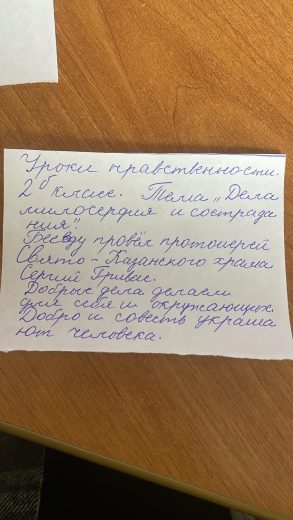 Уроки нравственности.
2 б классе. Тема „Дела
милосердия и сострада
ния".
Беседу провёл протоиерей
Свято-Казанского храма
Сергий Гривас.
Добрые дела делаем
для себя и окружающих.
Добро и совесть украша
ют человека.